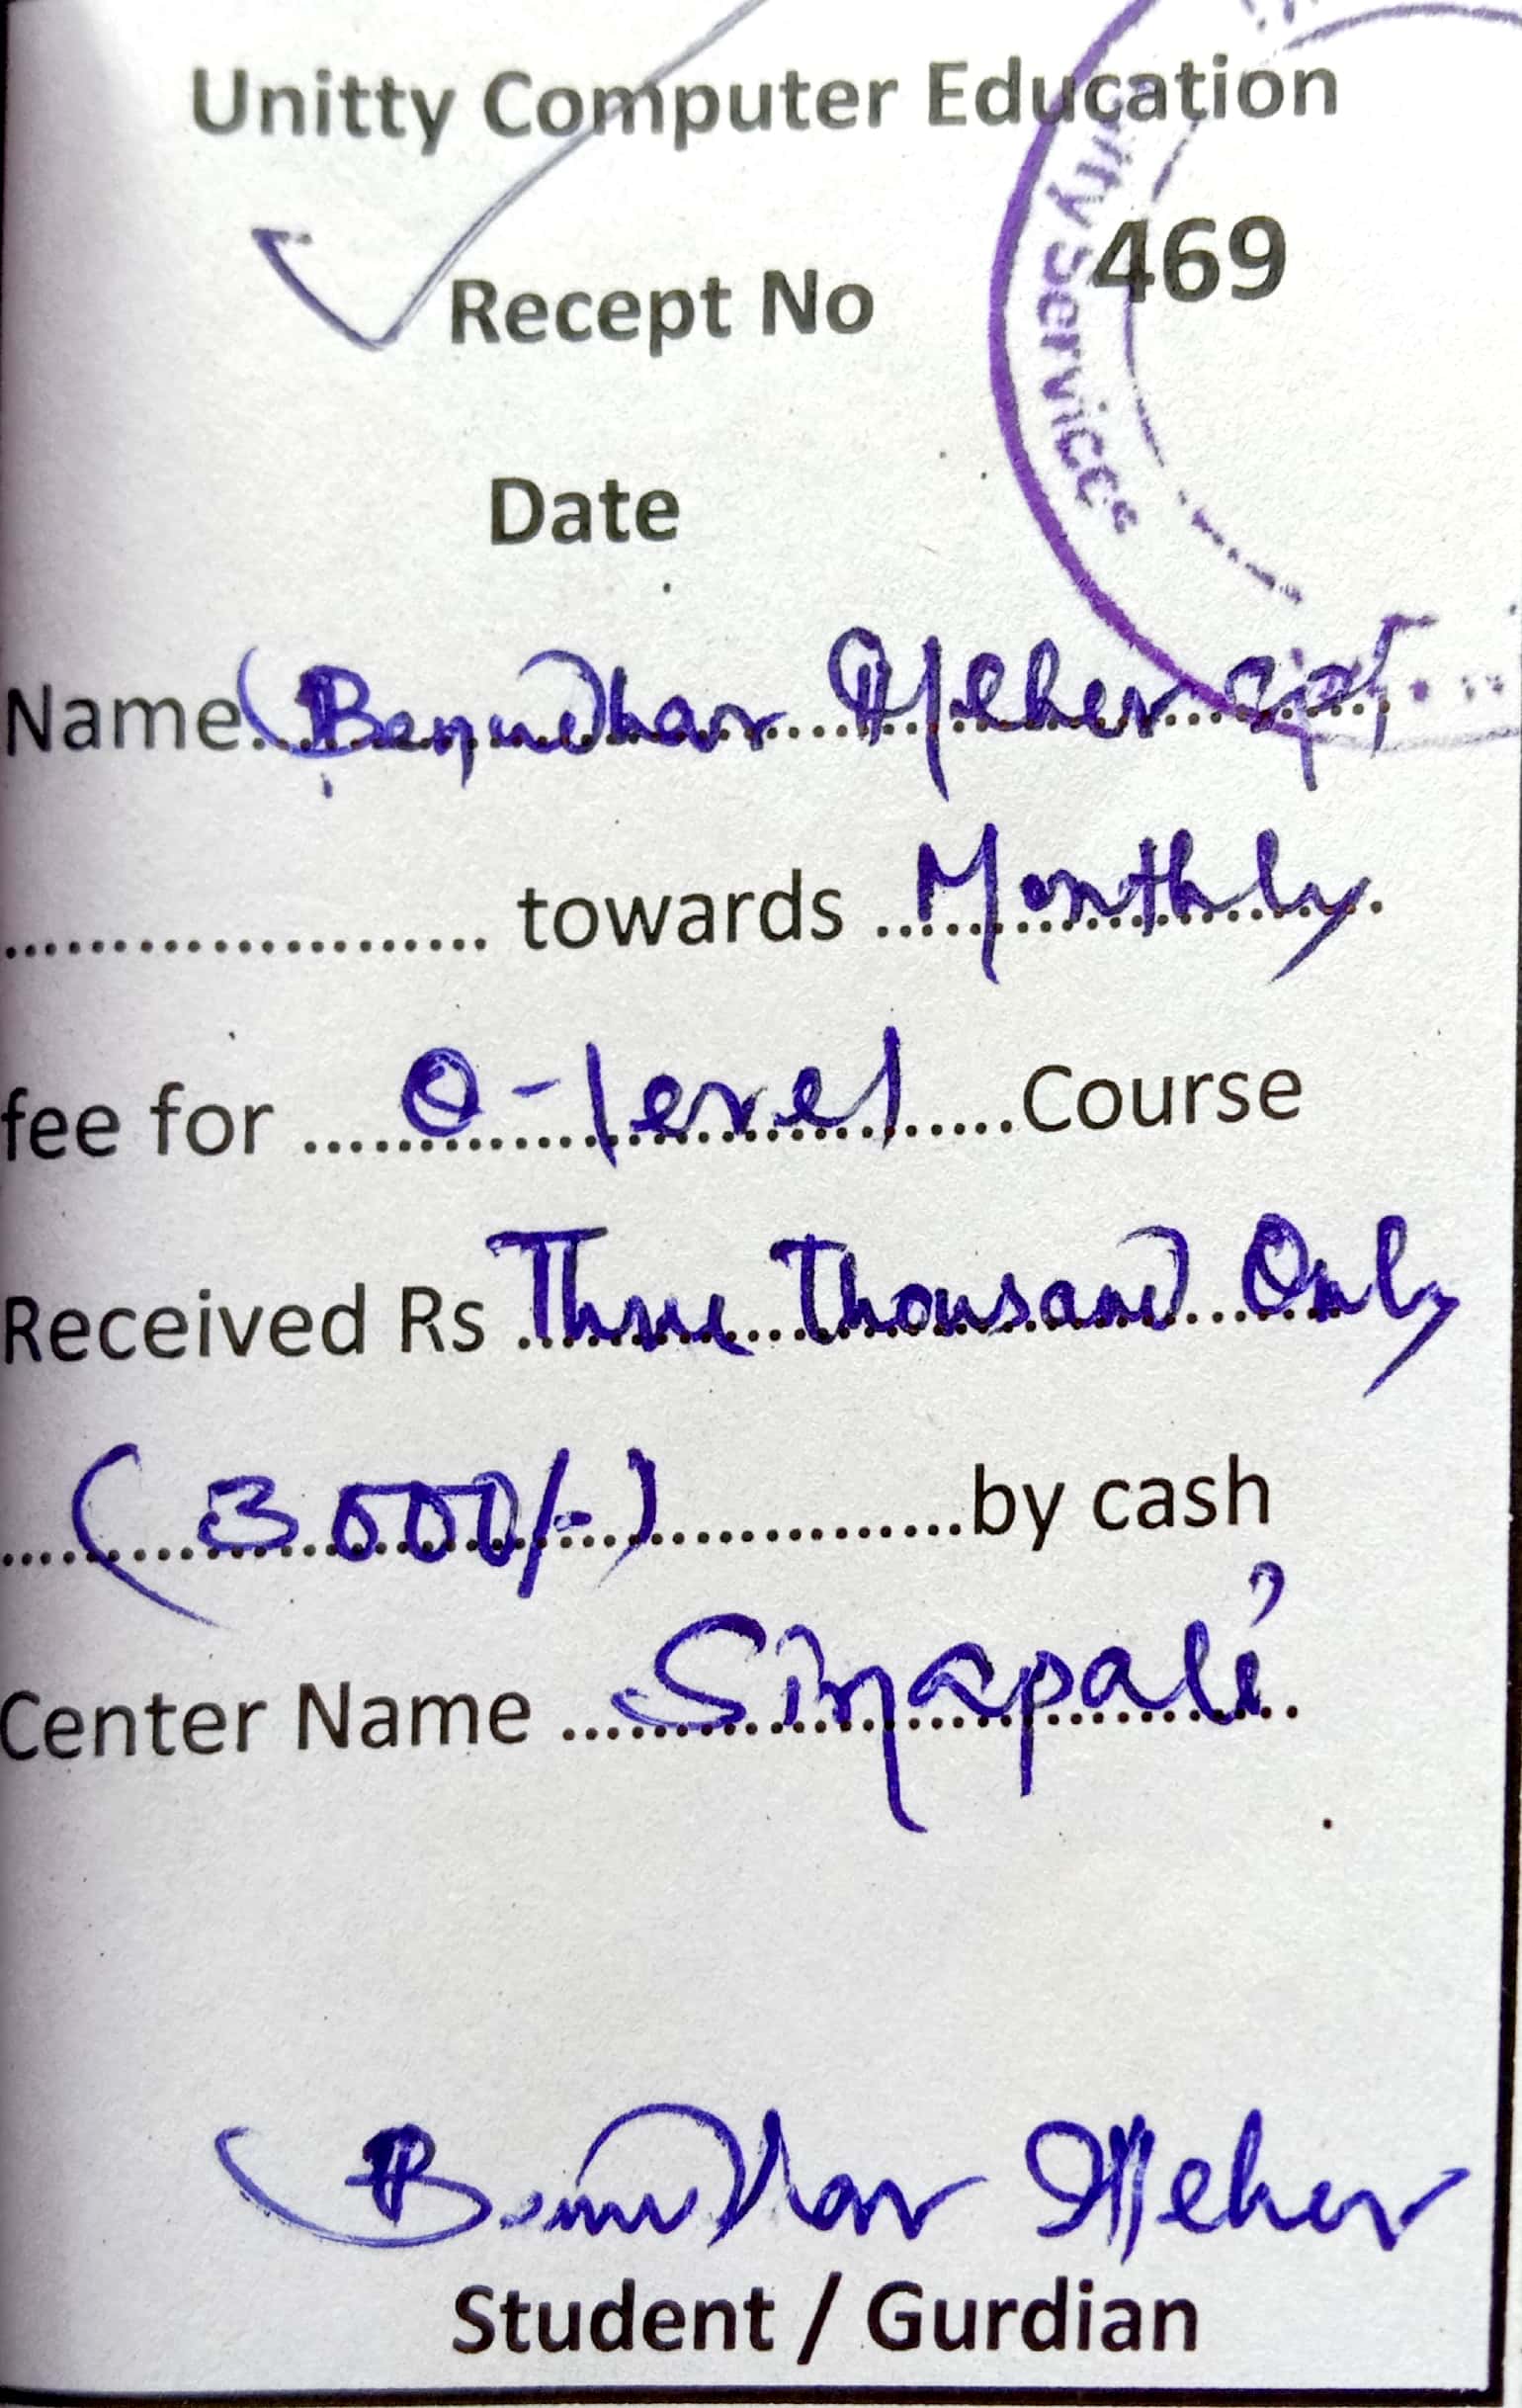 Unitty Computer Education
Recept No 469
ity Services
Date
Name. Benudhar Meher
..................... towards ..Monthly.
fee for ....O-level.....Course
Received Rs ..Three Thousand Only
(3000/-)..............by cash
Center Name ....Sinapali.
Benudhar Meher
Student / Gurdian